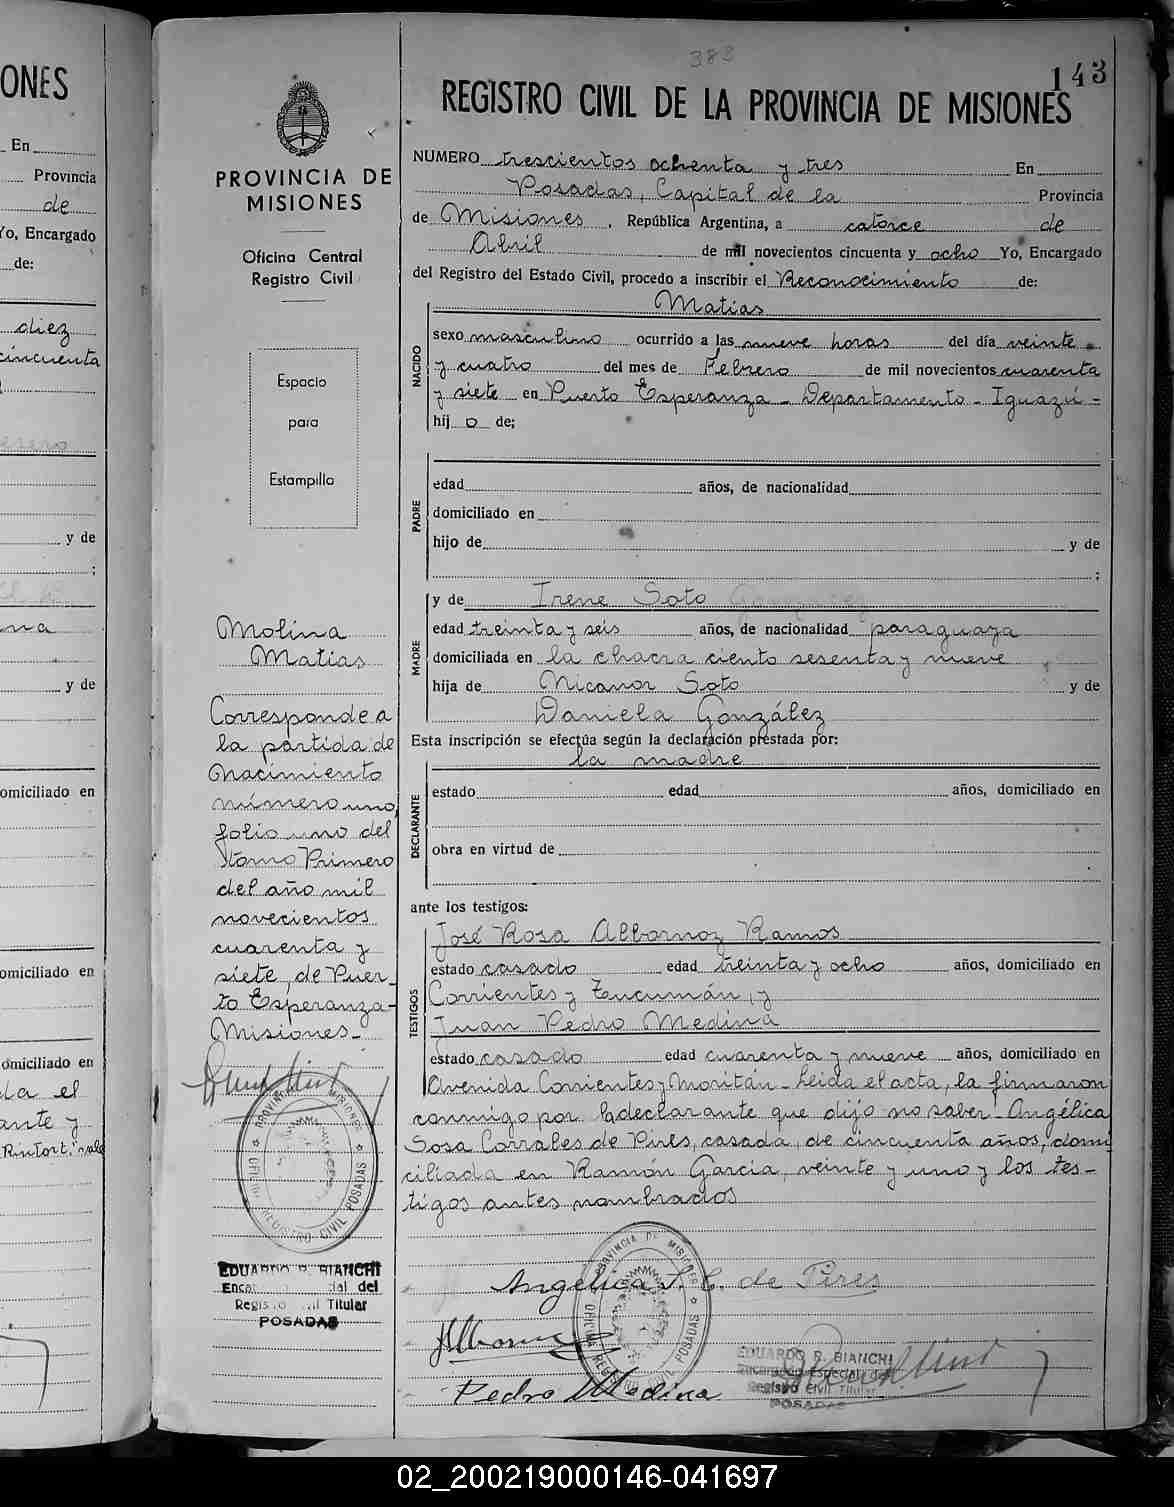 ONES
En
Provincia
de
Yo, Encargado
de:
diez
cincuenta
y de
;
na
y de
omiciliado en
omiciliado en
omiciliado en
da el
ante y
383
143
PROVINCIA DE
MISIONES
Oficina Central
Registro Civil
Espacio
para
Estampilla
Molina
Matias
Corresponde a
la partida de
Nacimiento
número uno,
folio uno del
tomo Primero
del año mil
novecientos
cuarenta y
siete, de Puer-
to Esperanza-
Misiones-
PROVINCIA DE MISIONES
REGISTRO CIVIL POSADAS
EDUARDO R. BIANCHI
Registro Civil Titular
POSADAS
REGISTRO CIVIL DE LA PROVINCIA DE MISIONES
NUMERO trescientos ochenta y tres En
Posadas, Capital de la Provincia
de Misiones, República Argentina, a catorce de
Abril de mil novecientos cincuenta y ocho Yo, Encargado
del Registro del Estado Civil, procedo a inscribir el Reconocimiento de:
NACIDO
Matias
sexo masculino ocurrido a las nueve horas del día veinte
y cuatro del mes de Febrero de mil novecientos cuarenta
y siete en Puerto Esperanza - Departamento - Iguazú -
hij o de;
PADRE
edad años, de nacionalidad
domiciliado en
hijo de y de
;
MADRE
y de Irene Soto González
edad treinta y seis años, de nacionalidad paraguaya
domiciliada en la chacra ciento sesenta y nueve
hija de Nicanor Soto y de
Daniela González
Esta inscripción se efectúa según la declaración prestada por:
la madre
DECLARANTE
estado edad años, domiciliado en
obra en virtud de
ante los testigos:
TESTIGOS
José Rosa Albornoz Ramos
estado casado edad treinta y ocho años, domiciliado en
Corrientes y Tucumán, y
Juan Pedro Medina
estado casado edad cuarenta y nueve años, domiciliado en
Avenida Corrientes y Moritán - Leida el acta, la firmaron
conmigo por la declarante que dijo no saber - Angélica
Sosa Corrales de Pires, casada, de cincuenta años, domi
ciliada en Ramón García, veinte y uno y los tes-
tigos antes nombrados
Angélica S. C. de Pires
Albornoz
Pedro Medina
PROVINCIA DE MISIONES
POSADAS
EDUARDO R. BIANCHI
Encargado Especial del
Registro Civil Titular
POSADAS
02_200219000146-041697